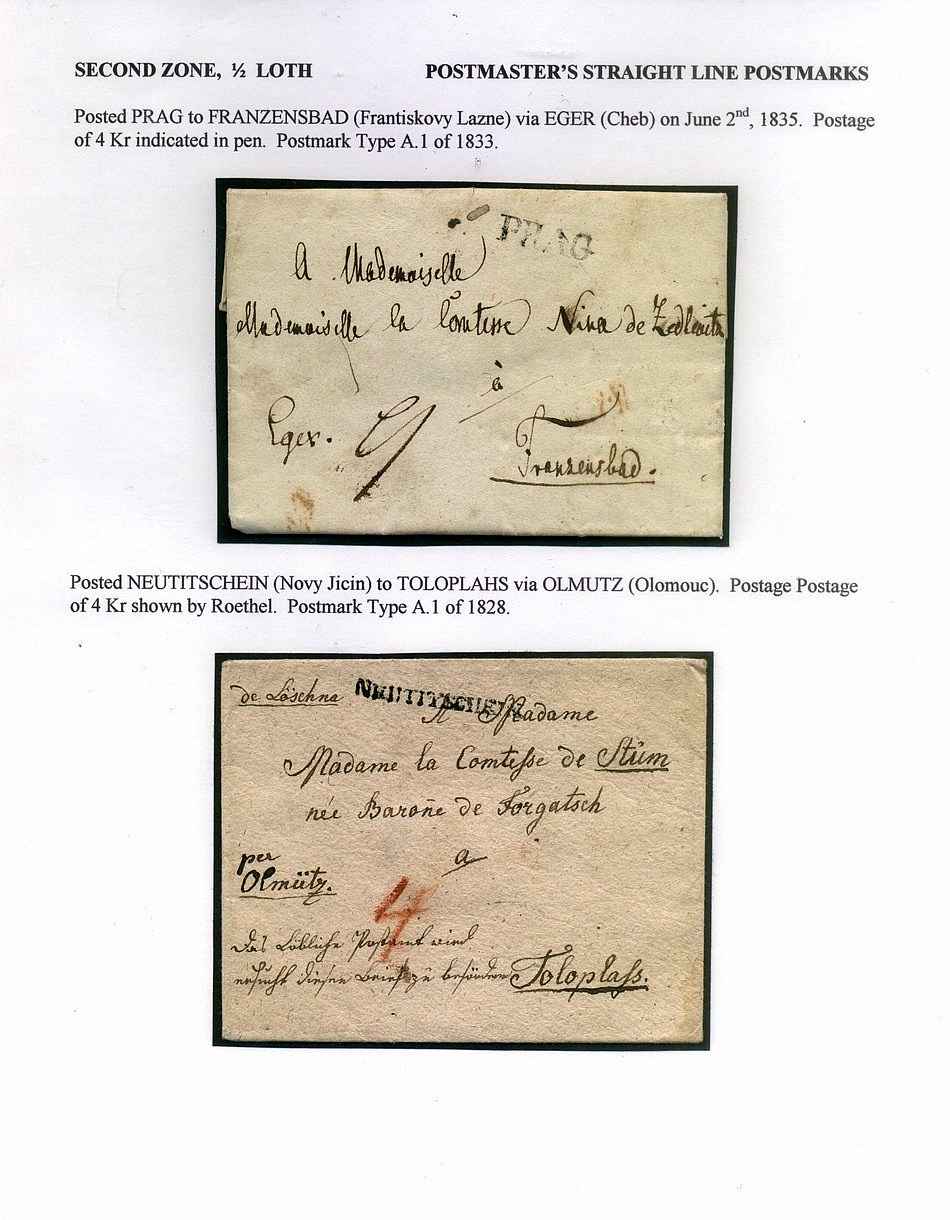 SECOND ZONE, ½ LOTH POSTMASTER'S STRAIGHT LINE POSTMARKS
Posted PRAG to FRANZENSBAD (Frantiskovy Lazne) via EGER (Cheb) on June 2nd, 1835. Postage
of 4 Kr indicated in pen. Postmark Type A.1 of 1833.
PRAG
A Mademoiselle
Mademoiselle la Comtesse Nina de Zedlwitz
à
Eger. 4
Franzensbad.
Posted NEUTITSCHEIN (Novy Jicin) to TOLOPLAHS via OLMUTZ (Olomouc). Postage Postage
of 4 Kr shown by Roethel. Postmark Type A.1 of 1828.
de Löschna NEUTITSCHEIN
A Madame
Madame la Comtesse de Stüm
née Barone de Forgatsch
a
per
Olmütz.
4
Das Löbliche Postamt wird
ersucht diesen Brief zu befördern Toloplass.